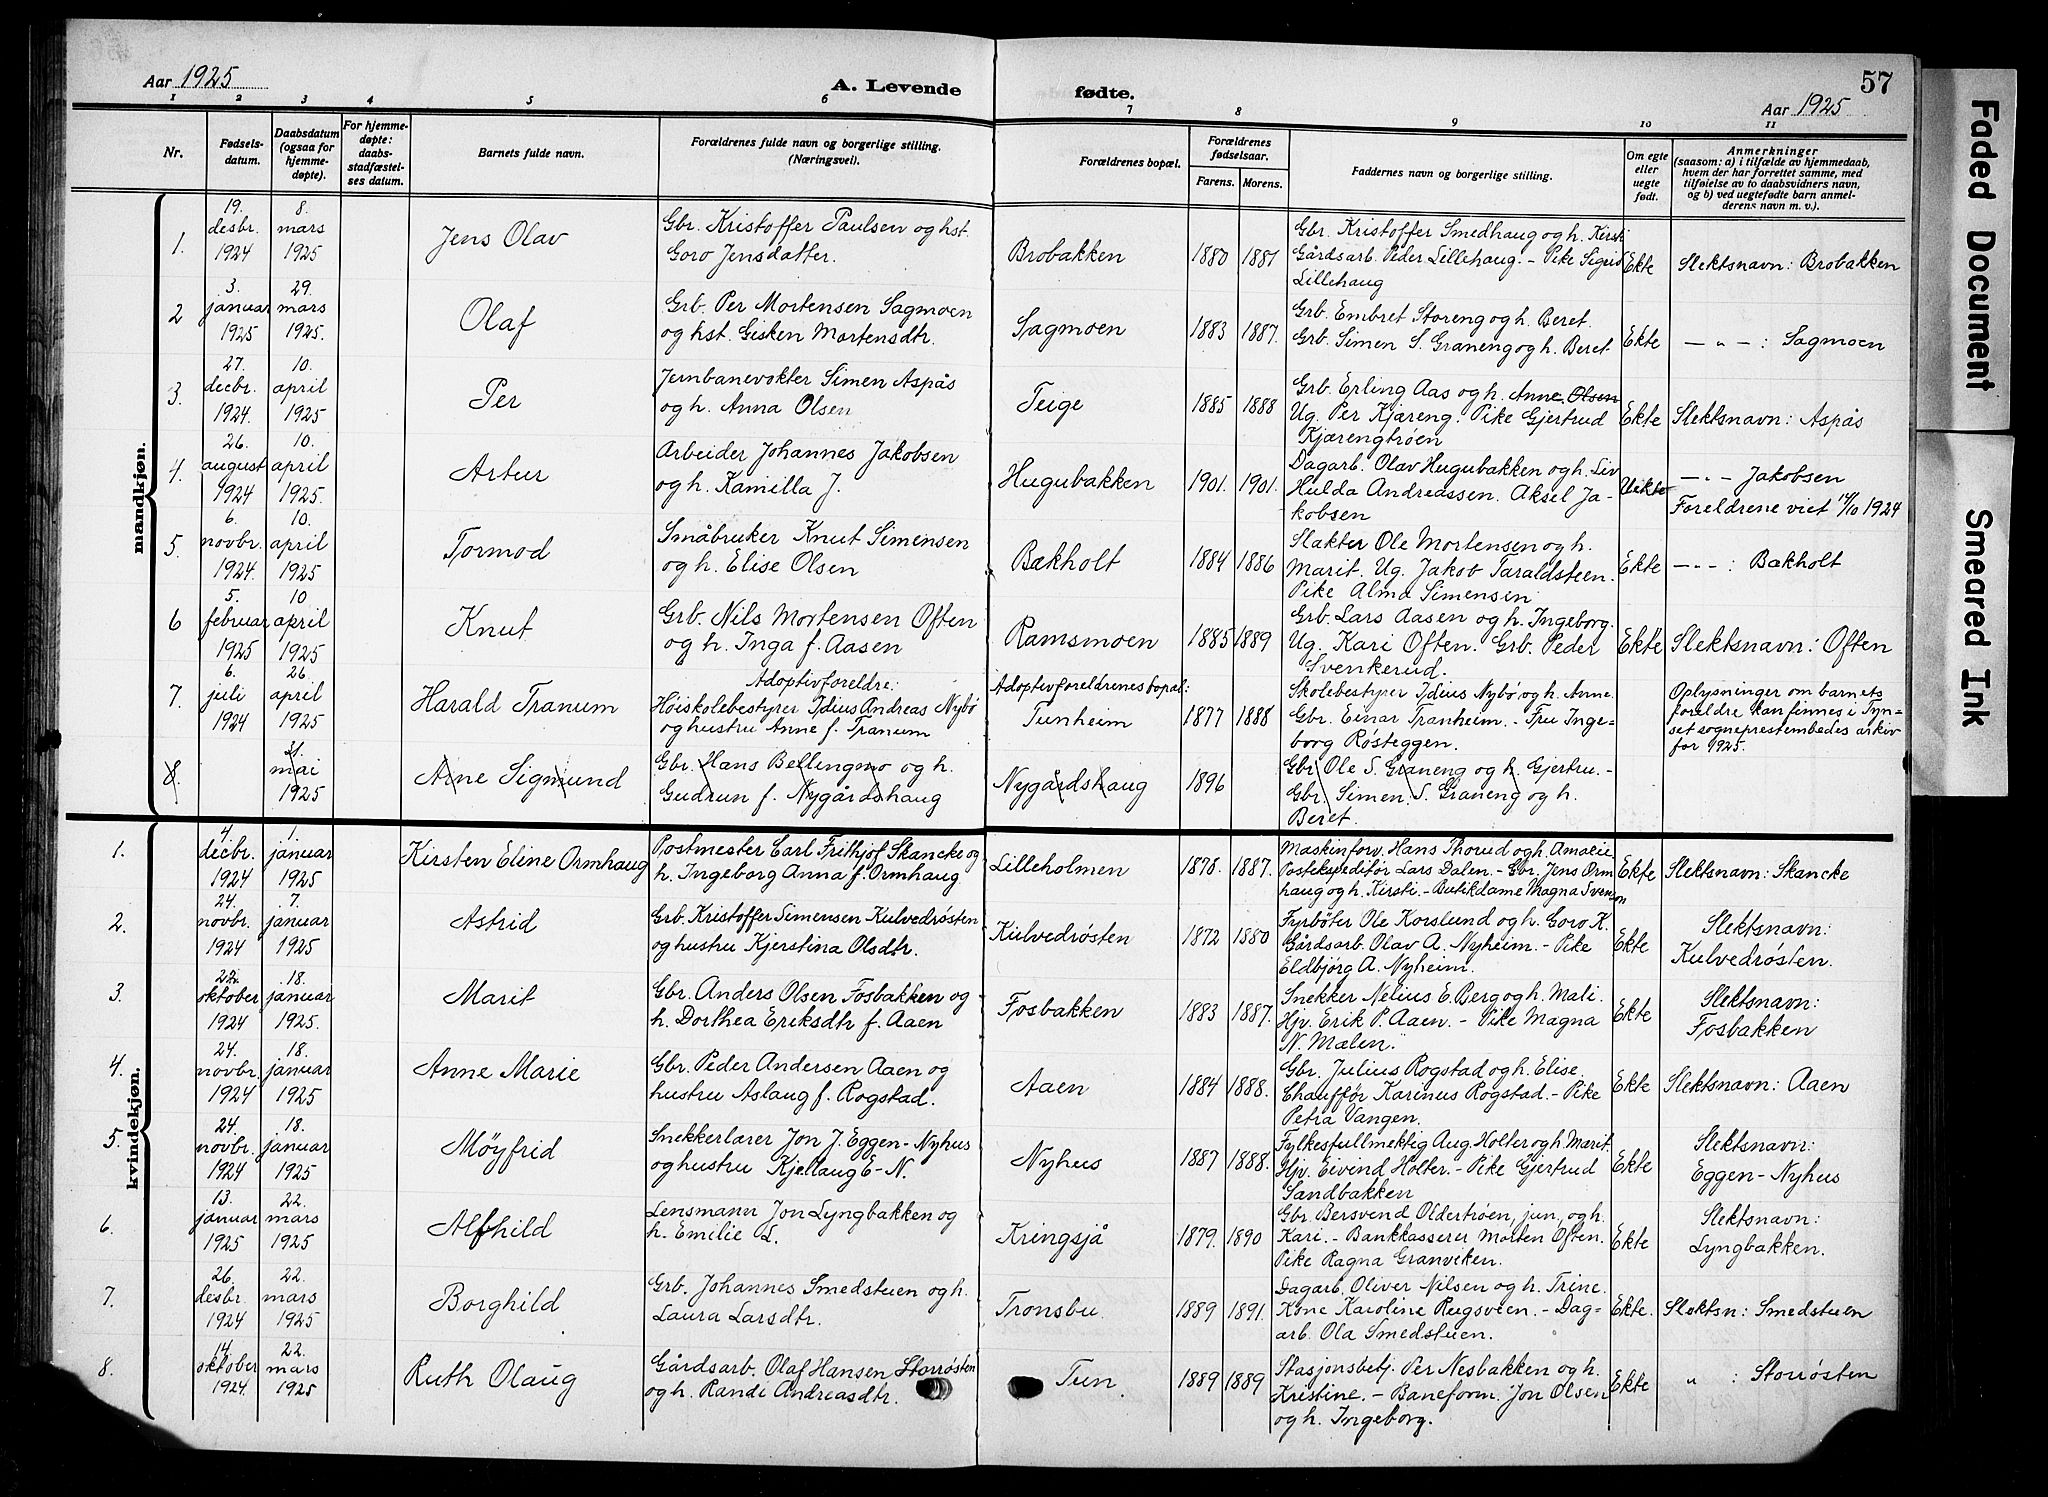 Aar 1925
A. Levende fødte.
57
Aar 1925
1 2 3 4 5 6 7 8 9 10 11
Nr.
Fødselsdatum.
Daabsdatum (ogsaa for hjemmedøpte).
For hjemmedøpte: daabsstadfæstelses datum.
Barnets fulde navn.
Forældrenes fulde navn og borgerlige stilling. (Næringsvei).
Forældrenes bopæl.
Forældrenes fødselsaar.
Farens. Morens.
Faddernes navn og borgerlige stilling.
Om egte eller uegte født.
Anmerkninger (saasom: a) i tilfælde av hjemmedaab, hvem der har forrettet samme, med tilføielse av to daabsvidners navn, og b) ved uegtefødte barn anmelderens navn m. v.).
mandkjøn.
1. 19. desbr. 1924 8. mars 1925 Jens Olav
Gbr. Kristoffer Paulsen og hst.
Goro Jensdatter.
Brobakken 1880 1881
Gbr. Kristoffer Smedhaug og h. Kirsti
Gårdsarb. Peder Lillehaug. - Pike Sigrid
Lillehaug
Ekte Slektsnavn: Brobakken
2 3. januar 1925 29. mars 1925. Olaf
Grb. Per Mortensen Sagmoen
og hst. Gisken Mortensdtr.
Sagmoen 1883 1887.
Grb. Embret Storeng og h. Beret.
Grb. Simen S. Graneng og h. Beret.
Ekte — " — : Sagmoen
3. 27. decbr. 1924 10. april 1925 Per
Jernbanevokter Simen Aspås
og h. Anna Olsen
Teige 1885 1888
Grb. Erling Aas og h. Anne Olsen
Ug. Per Kjæreng. Pike Gjertrud
Kjærengtrøen
Ekte Slektsnavn: Aspås
4 26. august 1924 10. april 1925. Artur
Arbeider Johannes Jakobsen
og h. Kamilla J.
Hugubakken 1901. 1901.
Dagarb. Olav Hugubakken og h. Liv
Hulda Andreassen. Aksel Ja-
kobsen
Uekte — " — Jakobsen
Foreldrene viet 14/10 1924
5. 6. novbr. 1924. 10. april 1925 Tormod
Småbruker Knut Simensen
og h. Elise Olsen
Bækholt 1884 1886
Slakter Ole Mortensen og h.
Marit. Ug. Jakob Taraldsteen.
Pike Alma Simensen
Ekte — " — : Bækholt
6 5. februar 1925 10 april 1925 Knut
Grb. Nils Mortensen Often
og h. Inga f. Aasen
Ramsmoen 1885 1889
Grb. Lars Aasen og h. Ingeborg.
Ug. Kari Often. Grb. Peder
Svenkerud.
Ekte Slektsnavn: Often
7. 6. juli 1924 26. april 1925 Harald Tranum
Adoptivforeldre:
Høiskolebestyrer Idius Andreas Nybø
og hustru Anne f. Tranum
Adoptivforeldrenes bopæl:
Tunheim 1877 1888
Skolebestyrer Idius Nybø og h. Anne.
Gbr. Einar Tranheim. - Fru Inge-
borg Røsteggen.
Oplysninger om barnets
foreldre kan finnes i Tyn-
set sogneprestembedes arkiv
for 1925.
8. 21. mai 1925 Arne Sigmund
Gbr. Hans Bellingmo og h.
Gudrun f. Nygårdshaug
Nygårdshaug 1896
Gbr. Ole S. Graneng og h. Gjertru. -
Gbr. Simen S. Graneng og h.
Beret.
kvindekjøn.
1. 4. decbr. 1924 1. januar 1925 Kirsten Eline Ormhaug
Postmester Carl Frithjof Skancke og
h. Ingeborg Anna f. Ormhaug
Lilleholmen 1878. 1887.
Maskinforv. Hans Thorud og h. Amalie.
Postekspeditør Lars Dalen. - Gbr. Jens Orm
haug og h. Kirsti. - Butikdame Magna Svensen
Ekte Slektsnavn: Skancke
2. 24. novbr. 1924 7. januar 1925 Astrid
Grb. Kristoffer Simensen Kulvedrøsten
og hustru Kjerstina Olsdtr.
Kulvedrøsten 1872 1880
Fyrbøter Ole Korslund og h. Goro K.
Gårdsarb. Olav A. Nyheim. - Pike
Eldbjörg A. Nyheim.
Ekte Slektsnavn:
Kulvedrøsten.
3. 22. oktober 1924 18. januar 1925. Marit
Gbr. Anders Olsen Fosbakken og
h. Dorthea Eriksdtr f. Aaen
Fosbakken 1883 1887.
Snekker Nelius E. Berg og h. Mali.
Hjv. Erik P. Aaen. - Pike Magna
N. Mælen.
Ekte Slektsnavn:
Fosbakken
4. 24. novbr. 1924 18. januar 1925 Anne Marie
Gbr. Peder Andersen Aaen og
hustru Aslaug f. Rogstad.
Aaen 1884 1888.
Gbr. Julius Rogstad og h. Elise.
Chauffør Karinus Rogstad. - Pike
Petra Vangen.
Ekte Slektsnavn: Aaen
5. 24. novbr. 1924 18. januar 1925 Møyfrid
Snekkerlærer Jon J. Eggen-Nyhus
og hustru Kjellaug E-N.
Nyhus 1887 1888.
Fylkesfullmektig Aug. Holter og h. Marit.
Hjv. Eivind Holter. - Pike Gjertrud
Sandbakken
Ekte Slektsnavn:
Eggen-Nyhus
6. 13. januar 1925 22. mars 1925 Alfhild
Lensmann Jon Lyngbakken og
h. Emilie L.
Kringsjå 1879. 1890
Gbr. Bersvend Oldertrøen, jun, og h.
Kari. - Bankkasserer Morten Often.
Pike Ragna Granviken.
Ekte Slektsnavn:
Lyngbakken.
7. 26. desbr. 1924 22. mars 1925 Borghild
Grb. Johannes Smedstuen og h.
Laura Larsdtr.
Tronsbu. 1889 1891.
Dagarb. Oliver Nilsen og h. Trine.
Kone Karoline Rugsveen. - Dag-
arb. Ola Smedstuen.
Ekte. Slektsn: Smedstuen
8. 14. oktober 1924. 22. mars 1925 Ruth Olaug
Gårdsarb. Olaf Hansen Storrøsten
og h. Randi Andreasdtr.
Tun. 1889 1889
Stasjonsbetj. Per Nesbakken og h.
Kristine. - Baneform. Jon Olsen
og h. Ingeborg.
Ekte " : Storrøsten
Faded Document
Smeared Ink